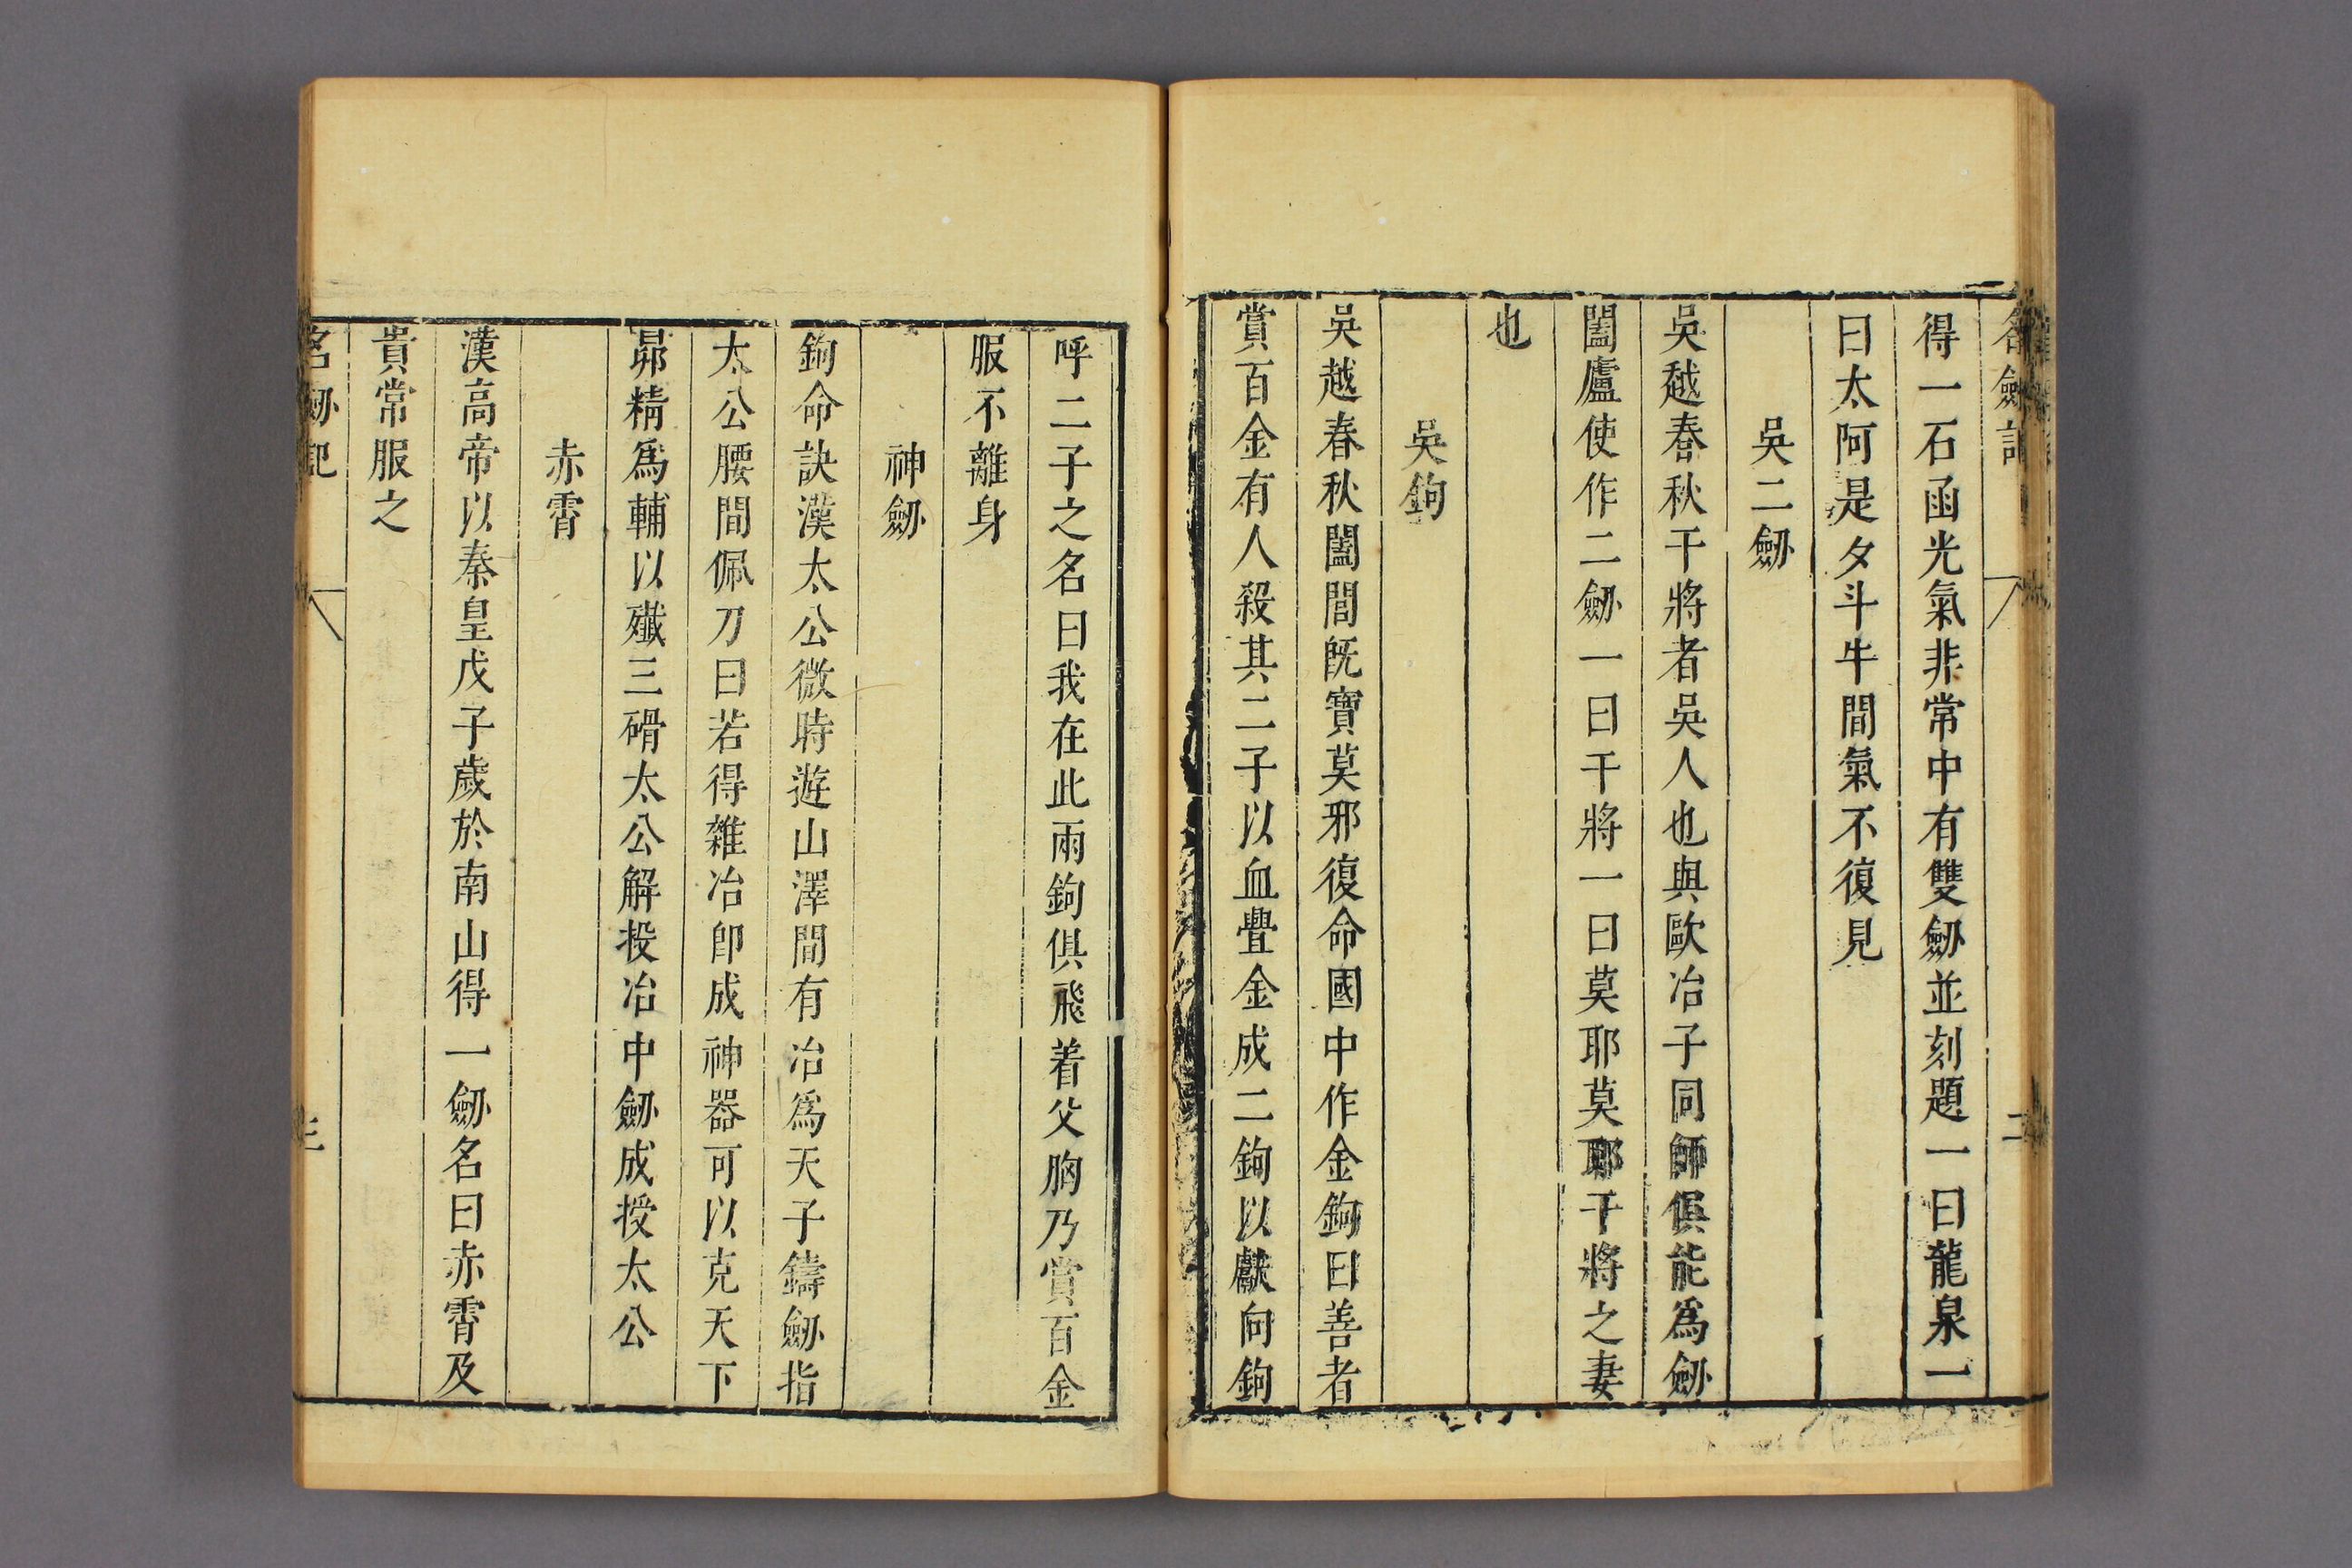 名劍記
二
得一石函光氣非常中有雙劒並刻題一曰龍泉一
曰太阿是夕斗牛間氣不復見
吳二劒
吳越春秋干將者吳人也與歐冶子同師俱能爲劒
闔廬使作二劒一曰干將一曰莫耶莫耶干將之妻
也
吳鉤
吳越春秋闔閭旣寶莫邪復命國中作金鉤曰善者
賞百金有人殺其二子以血舋金成二鉤以獻向鉤
呼二子之名曰我在此兩鉤俱飛着父胸乃賞百金
服不離身
神劒
鉤命訣漢太公微時遊山澤間有冶爲天子鑄劒指
太公腰間佩刀曰若得雜冶卽成神器可以克天下
昴精爲輔以殲三猾太公解投冶中劒成授太公
赤霄
漢高帝以秦皇戊子歲於南山得一劒名曰赤霄及
貴常服之
名劒記
三